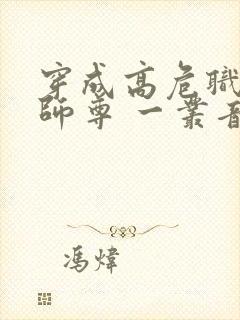 穿成高危職
師尊 一叢音
馮煒